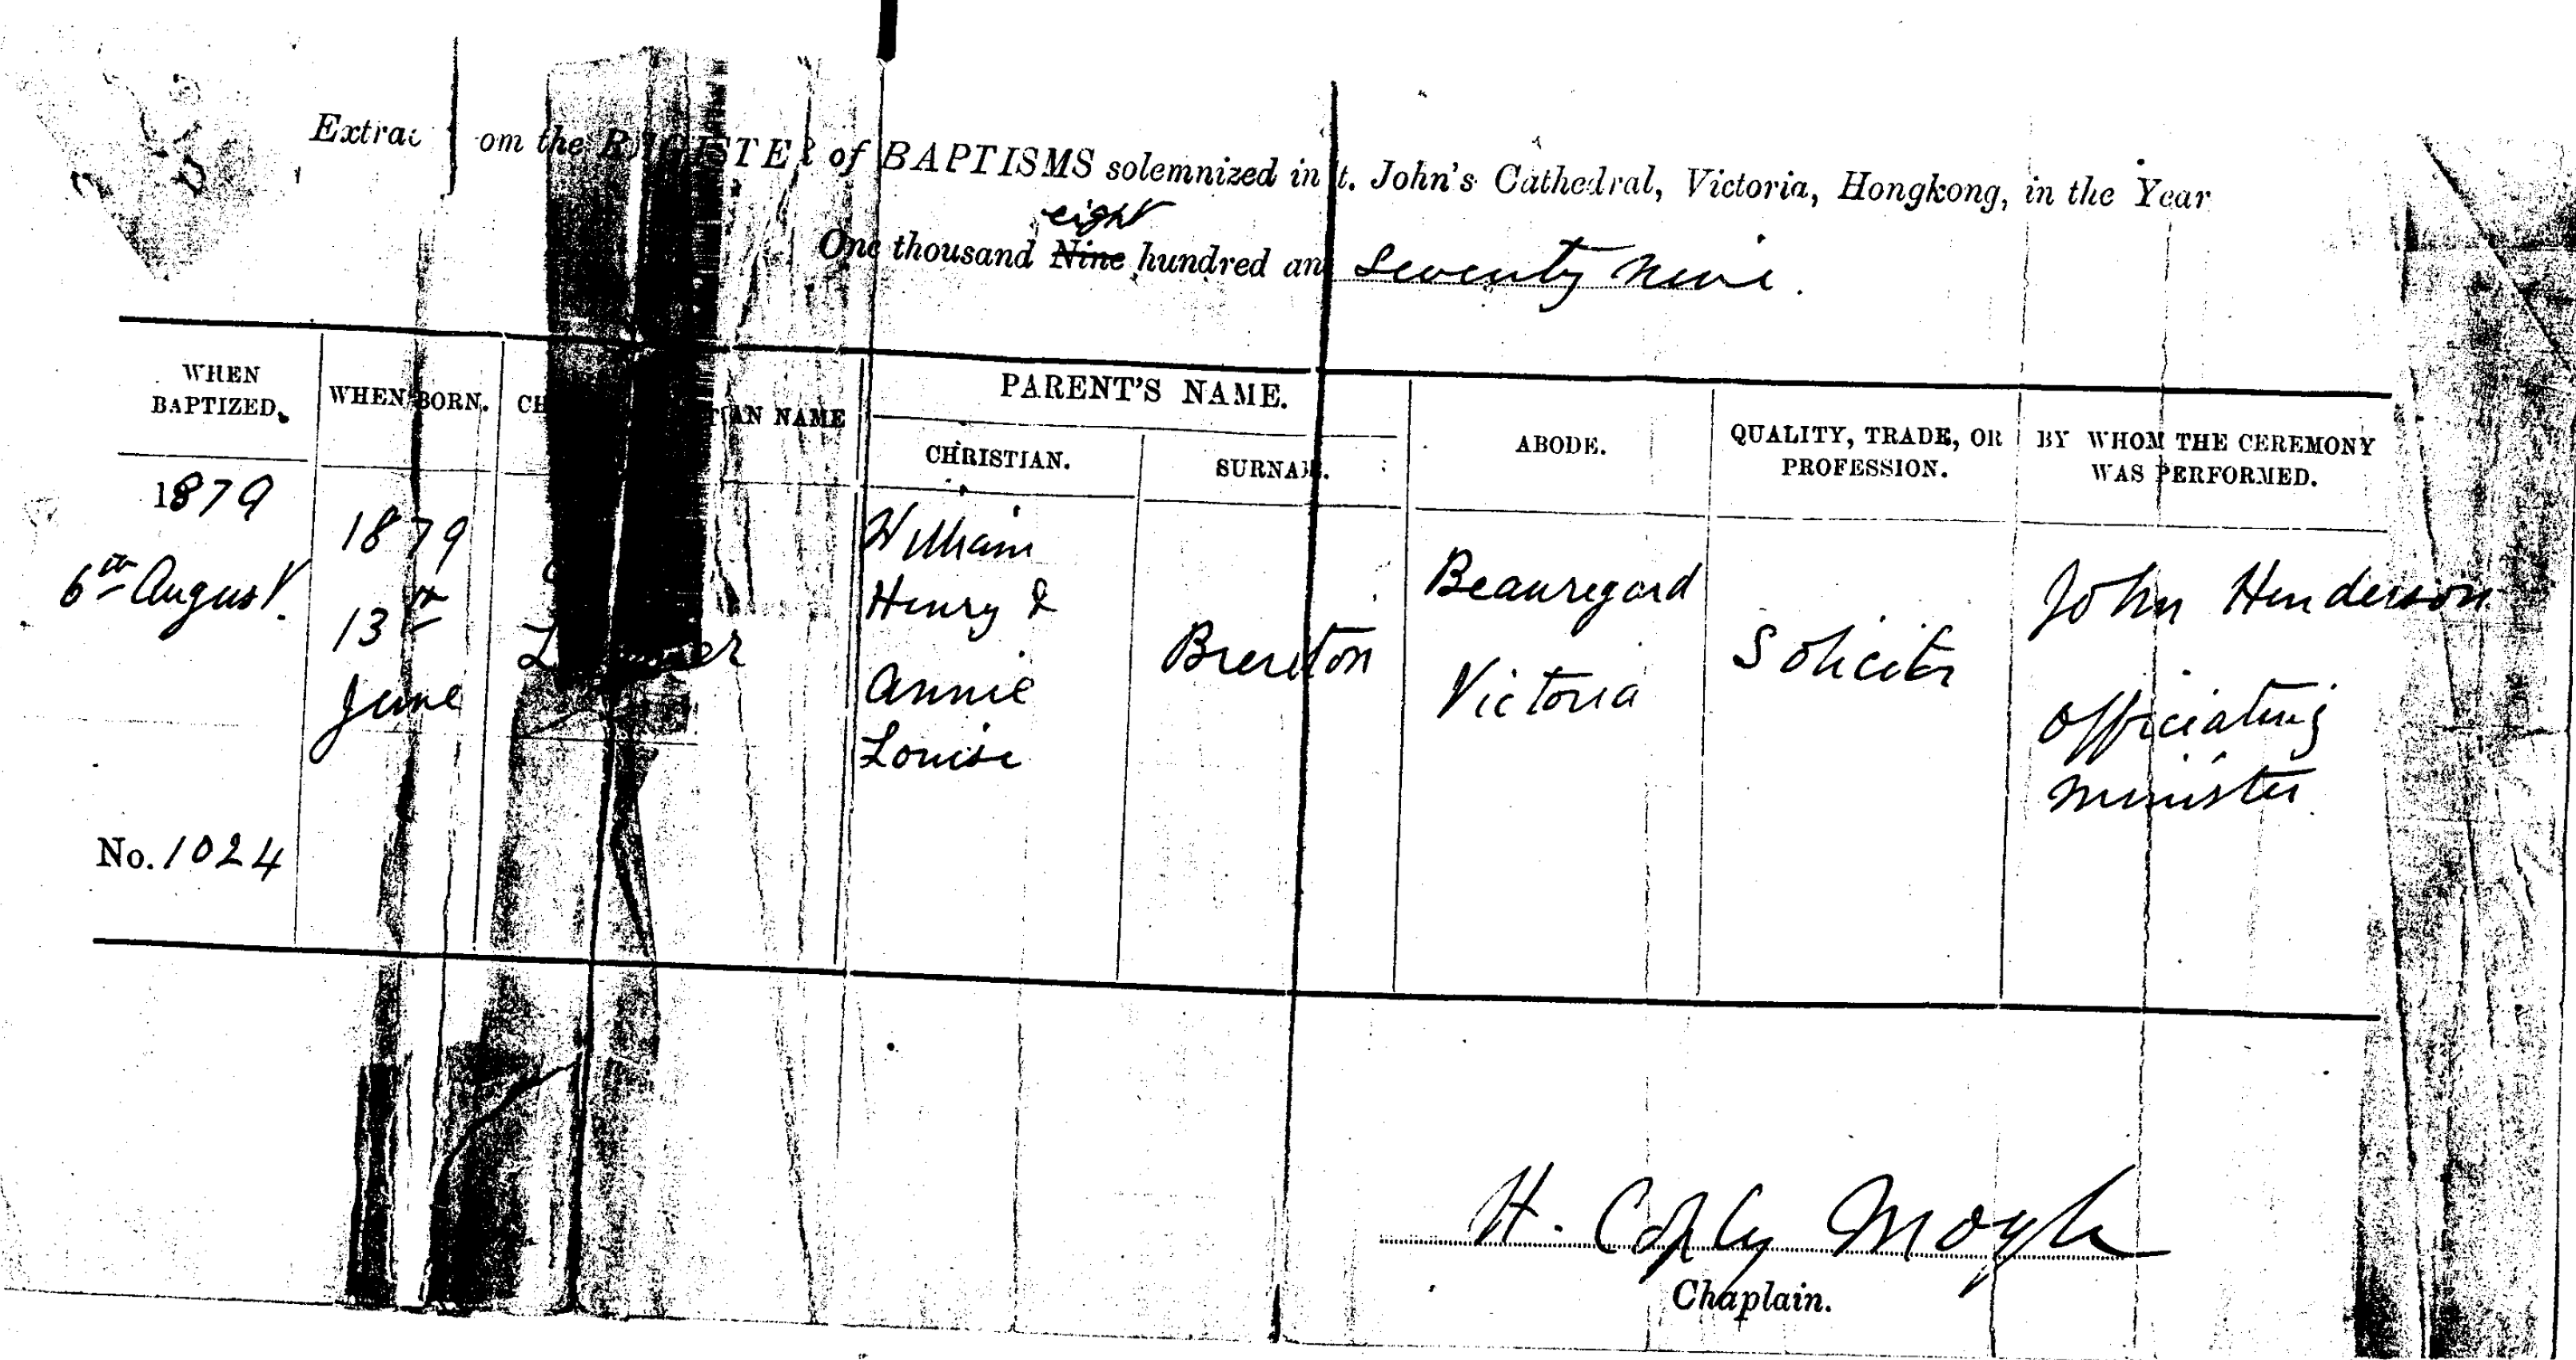 Extrac om the REGISTER of BAPTISMS solemnized in t. John's Cathedral, Victoria, Hongkong, in the Year
eight
One thousand Nine hundred an seventy nine.
WHEN BAPTIZED.
WHEN BORN.
CH IAN NAME
PARENT'S NAME.
CHRISTIAN.
SURNAM.
ABODE.
QUALITY, TRADE, OR PROFESSION.
BY WHOM THE CEREMONY WAS PERFORMED.
1879
6th August.
No. 1024
1879
13th
June
William
Henry &
Annie
Louise
Brereton
Beauregard
Victoria
Solicitor
John Henderson
Officiating
minister
H. Copley Moyle
Chaplain.